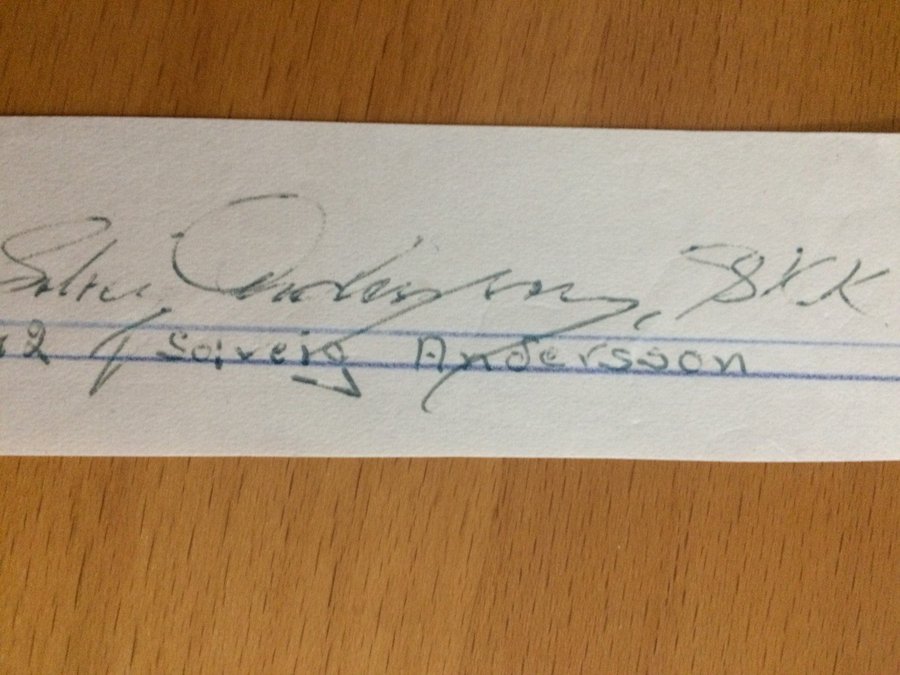 Solvei Andersson, SKK
12 Solveig Andersson